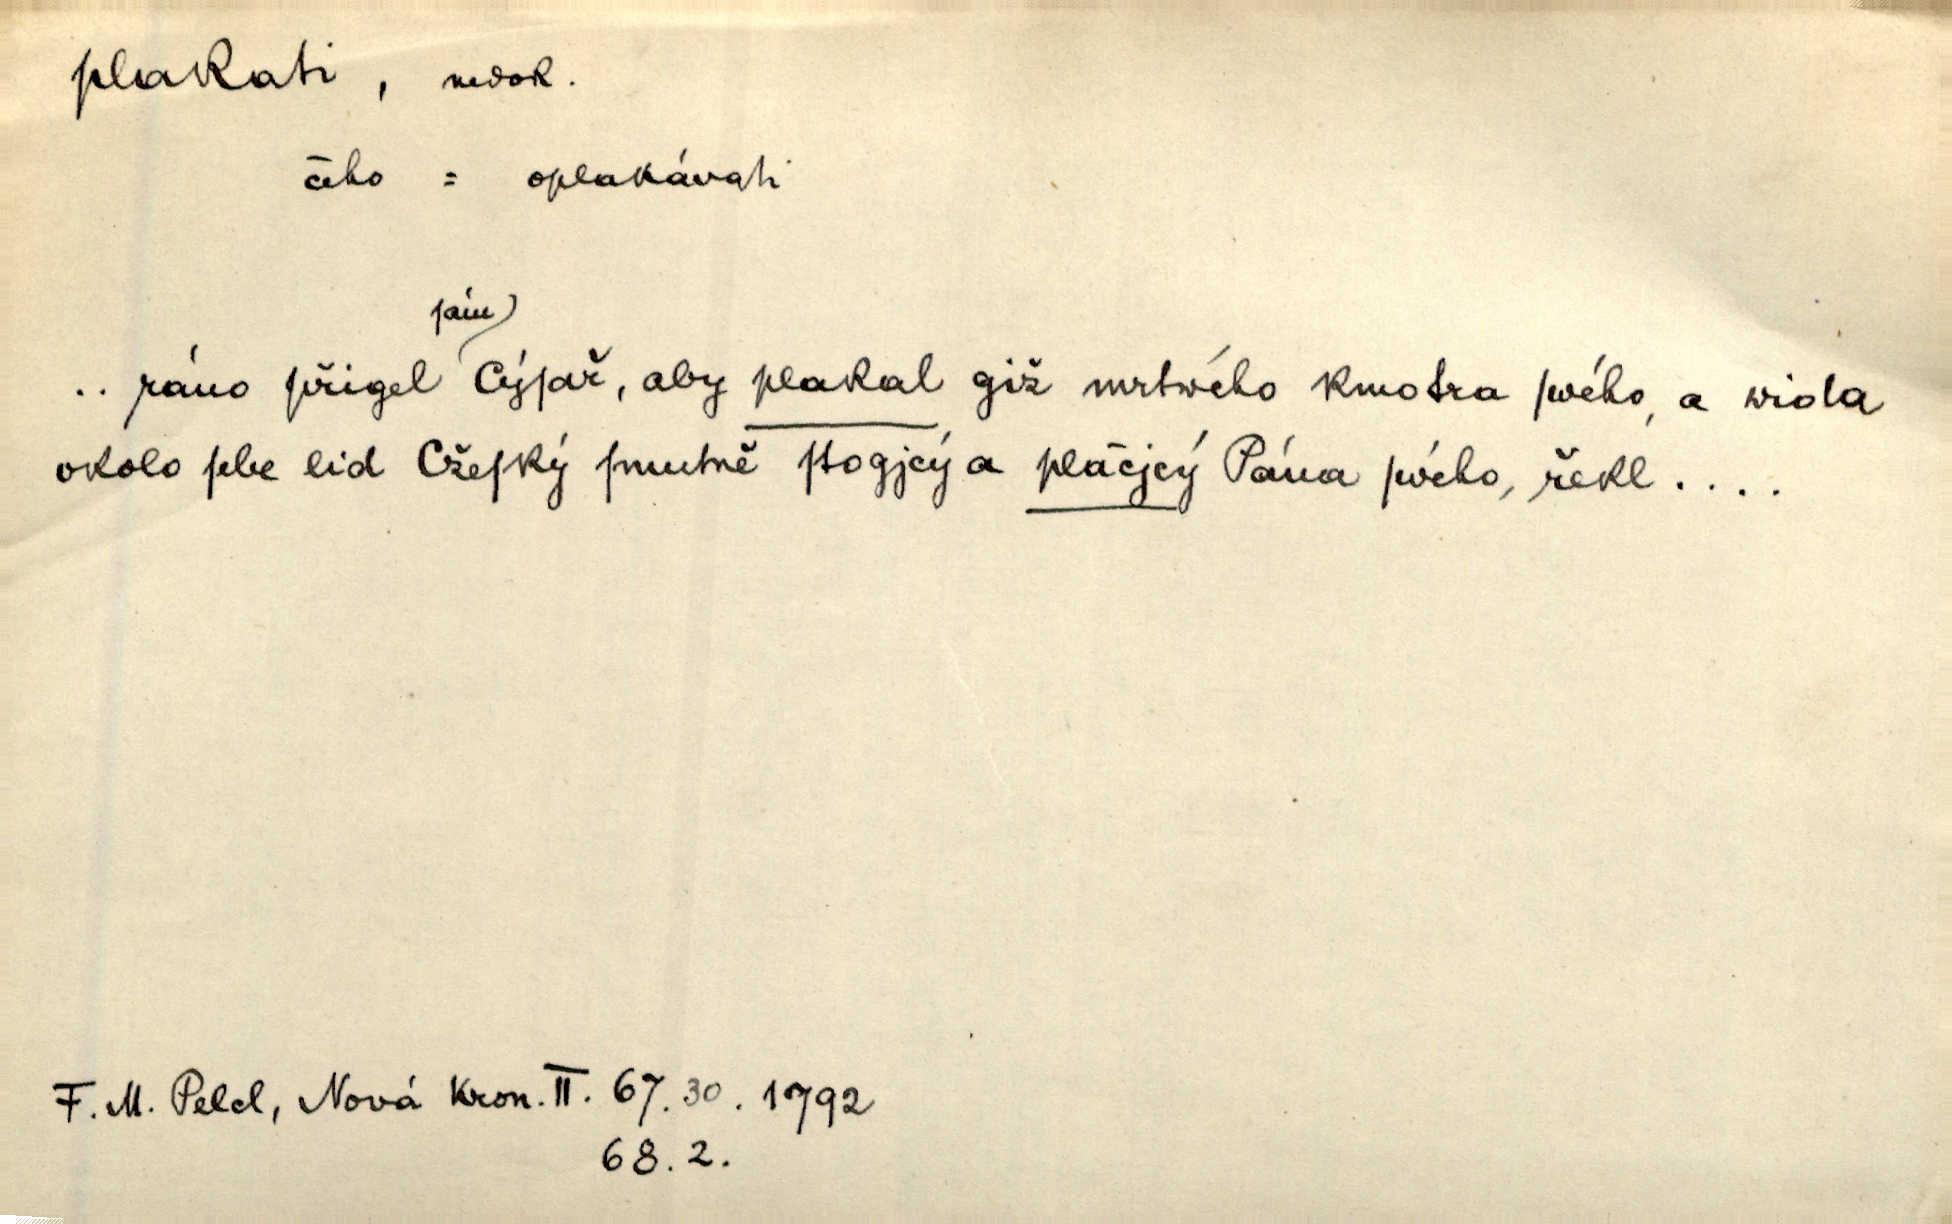 plakati, nedok.
čeho = oplakávati
ſám
.. ráno přigel Cýſař, aby plakal giž mrtwého kmotra ſwého, a wida
okolo ſebe lid Cžeſký ſmutně ſtogjcý a pláčjcý Pána ſwého, řekl ....
F. M. Pelcl, Nová Kron. II. 67. 30. 1792
68. 2.